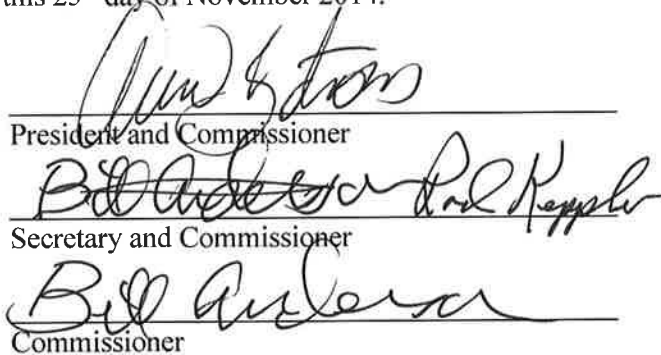 this 25 day of November 2014.
President and Commissioner
Bill Anderson Rod Keppler
Secretary and Commissioner
Bill Anderson
Commissioner